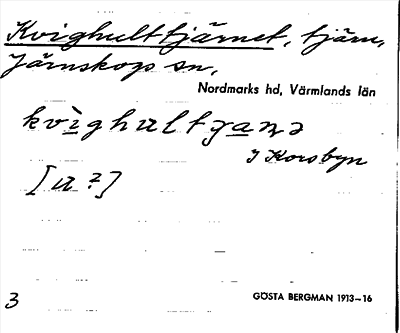 Kvighulttjärnet, tjärn,
Järnskogs sn.
Nordmarks hd, Värmlands län
kvìghultjaṉə
J Korsbyn
[u ?]
3
GÖSTA BERGMAN 1913-16